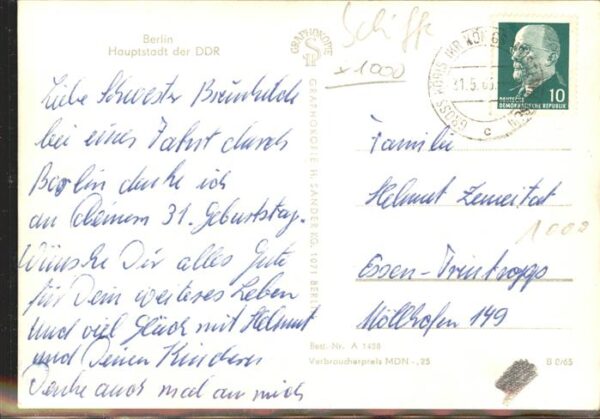 Berlin
Hauptstadt der DDR
Liebe Schwester Brünhilde
bei einer Fahrt durch
Berlin denke ich
an Deinem 31. Geburtstag.
Wünsche Dir alles Gute
für Dein weiteres Leben
und viel Glück mit Helmut
und Deinen Kindern
Denke auch mal an mich
GRAPHOKOPIE
GRAPHOKOPIE H. SANDER KG, 1071 BERLIN
Schiffe
x 1000
GROSS KÖRIS
31.5.65
c
10
DEUTSCHE
DEMOKRATISCHE REPUBLIK
Familie
Helmut Zemeitat
1000
Essen-Frintropp
Möllhofen 149
Best. Nr. A 1458
Verbraucherpreis MDN -,25
B 2/65